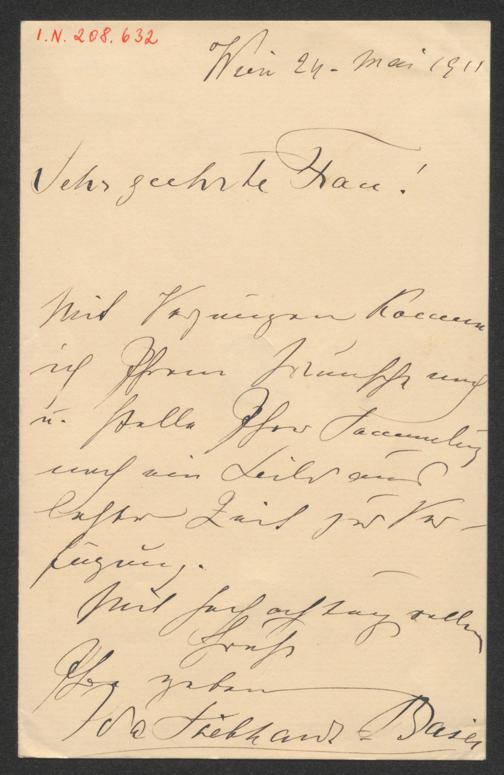 I.N. 208.632
Wien 24. Mai 1911
Sehr geehrte Frau!
Mit Vergnügen komme
ich Ihrem Wunsche nach
u. stelle Ihrer Sammlung
noch ein Bild aus
letzter Zeit zur Ver-
fügung.
Mit hochachtungsvollem
Gruß
Ihre ergebene
Ida Liebhardt-Baier